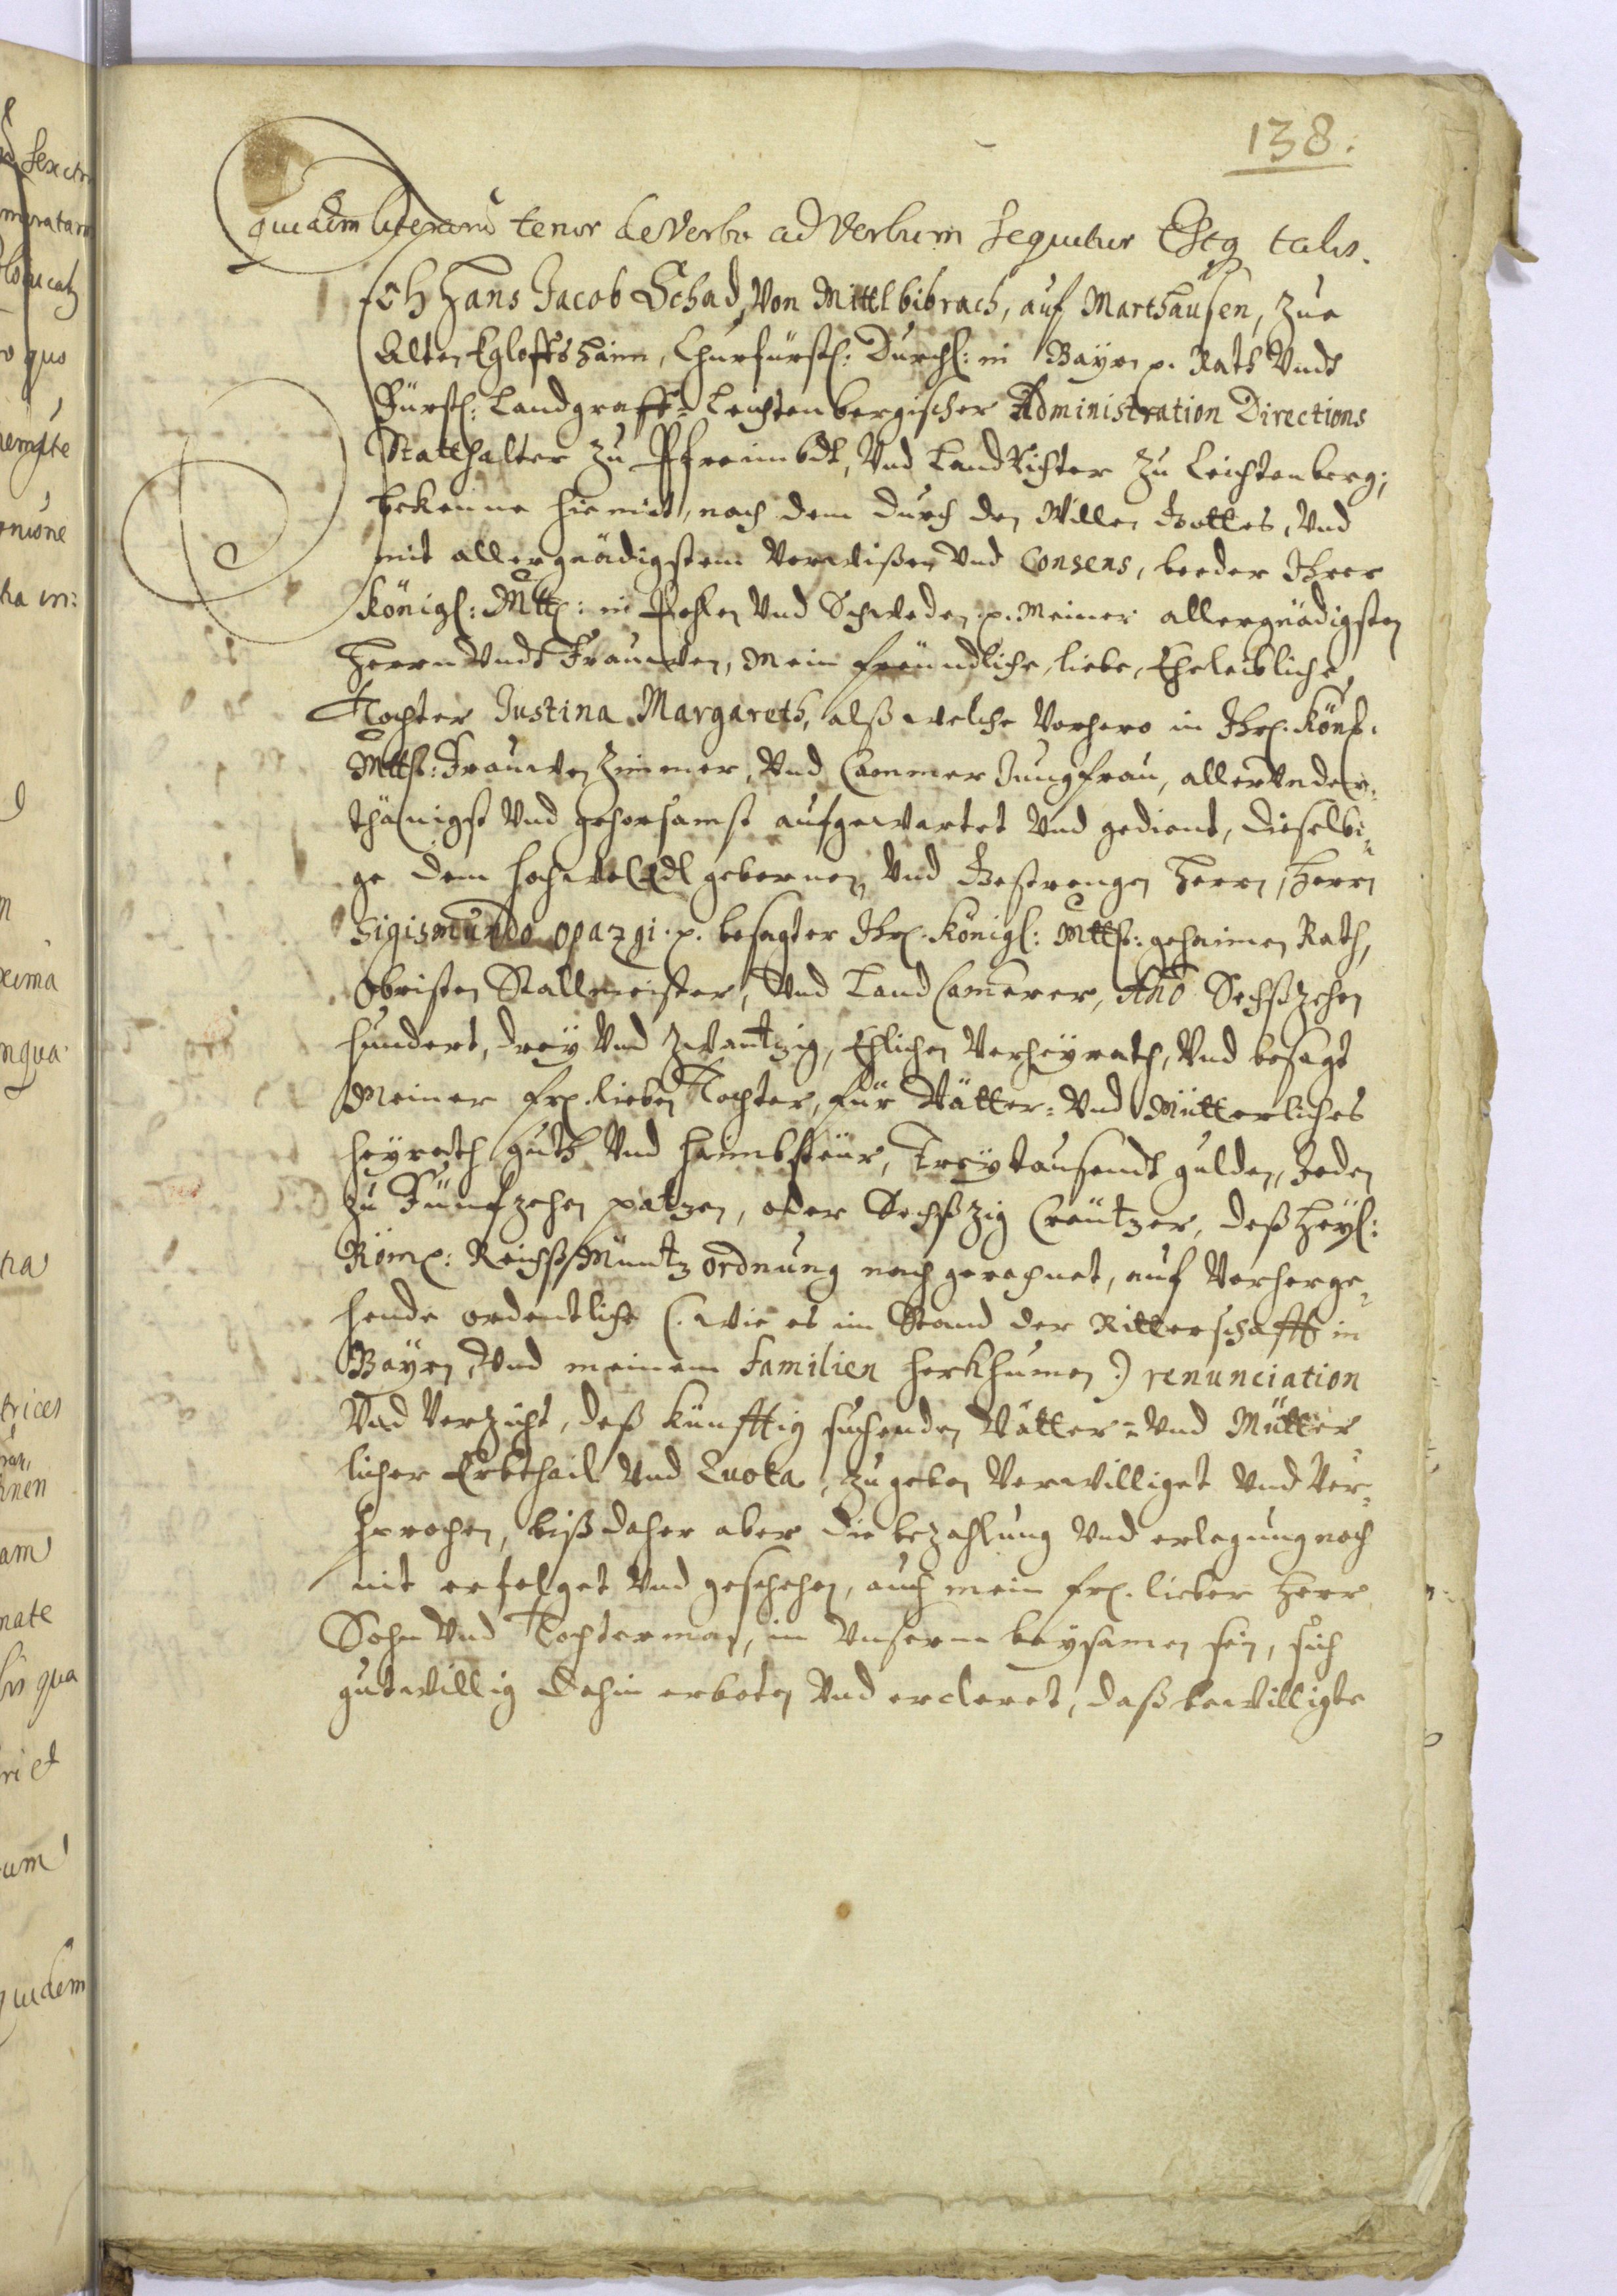 138.
quidem literarum tenor de Verbo ad Verbum sequitur Estq talis.
Ich Hans Jacob Schad, Von Mittlbibrach, auf Marthausen, zue
Alten Egloffshaim, Churfürstl: Durchl: in Bayrn p. Rath Vndt
Fürstl: Landgraff= Leuchtenbergischer Administration Directions
Statthalter zu Pfreimbdt, Vnd LandRichter zu Leichtenberg;
bekenne hiemit, nach dem durch den Willen Gottes, Vnd
mit allergnädigstem Verwißen Vnd Consens, beeder Ihrer
Königl: Mtt: in Pohln Vnd Schweden p. Meiner allergnädigsten
Herrn Vndt Frauwen, Mein freündtliche, liebe, Eheleibliche
Tochter Justina Margareth, alß welche Vorhero in Ihr. Könl.
Mtt: Frauwen Zimmer, Vnd Cammer Jungfrau, allerVnder,
thänigst Vnd gehorsamst aufgewartet Vnd gedient, dieselbi,
ge dem HochwolEdl gebornen, Vnd Gestrengen Herrn, Herrn
Sigismundo Opazgi. p. besagter Ihr. Königl: Mtt: gehaimen Rath,
Obristen Stallmeister, Vnd Land Camerer, Ano Sechßzehen
hundert, drey Vnd Zwantzig, Ehlichen Verheyrath, Vnd besagt
Meiner fr. lieben Tochter, für Vätter= Vnd Mütterliches
heyrath guth Vnd haimbsteur, Dreytausendt gulden, Jeden
zu Fünfzehen patzen, oder Sechßzig Creützer, deß Heyl:
Röm: Reichß Müntz ordnung nach gerechnet, auf Vorherge,
hende ordentliche (. wie es im Stand der Ritterschafft in
Bayrn, Vnd meinem Familien herkhumen .) renunciation
Vnd Verzicht, deß künfftig suchenden Vätter= Vnd Mütter
licher Erbthail Vnd Quota, zu geben Verwilliget Vnd Ver,
sprochen, biß daher aber die bezahlung Vnd erlegung noch
nit erfolget Vnd geschehen, auch mein fr. lieber Herr
Sohn Vnd Tochterman, in Vnserm beysamen sein, sich
gutwillig dahin erboten Vnd ercleret, daß bewilligte